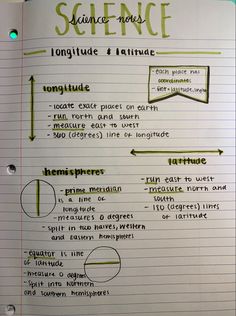 SCIENCE
science notes
longitude & latitude
- each place has
coordinates
- first = latitude, longitude
longitude
- locate exact places on earth
- run north and south
- measure east to west
- 360 (degrees) line of longitude
latitude
- run east to west
- measure north and
south
- 180 (degrees) lines
of latitude
hemispheres
- prime meridian
is a line of
longitude
- measures 0 degrees
- split in two halves, western
and eastern hemispheres
- equator is line
of latitude
- measure 0 degrees
- split into northern
and southern hemispheres